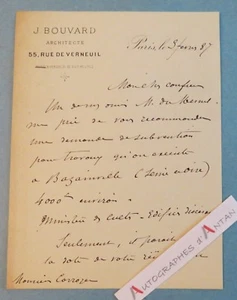 J. BOUVARD
ARCHITECTE
55, RUE DE VERNEUIL
Paris, le 3 fevrier 87
Mon cher confrère
Un de mes amis M. du Mesnil
me prie de vous recommander
une demande de subvention
pour travaux qu'on exécute
à Bazainville (Seine et oise)
4000f environ.
(Ministère des Cultes - Edifices
Seulement, il paraît
la note de votre
Monsieur Corroyer
AUTOGRAPHES D'ANTAN